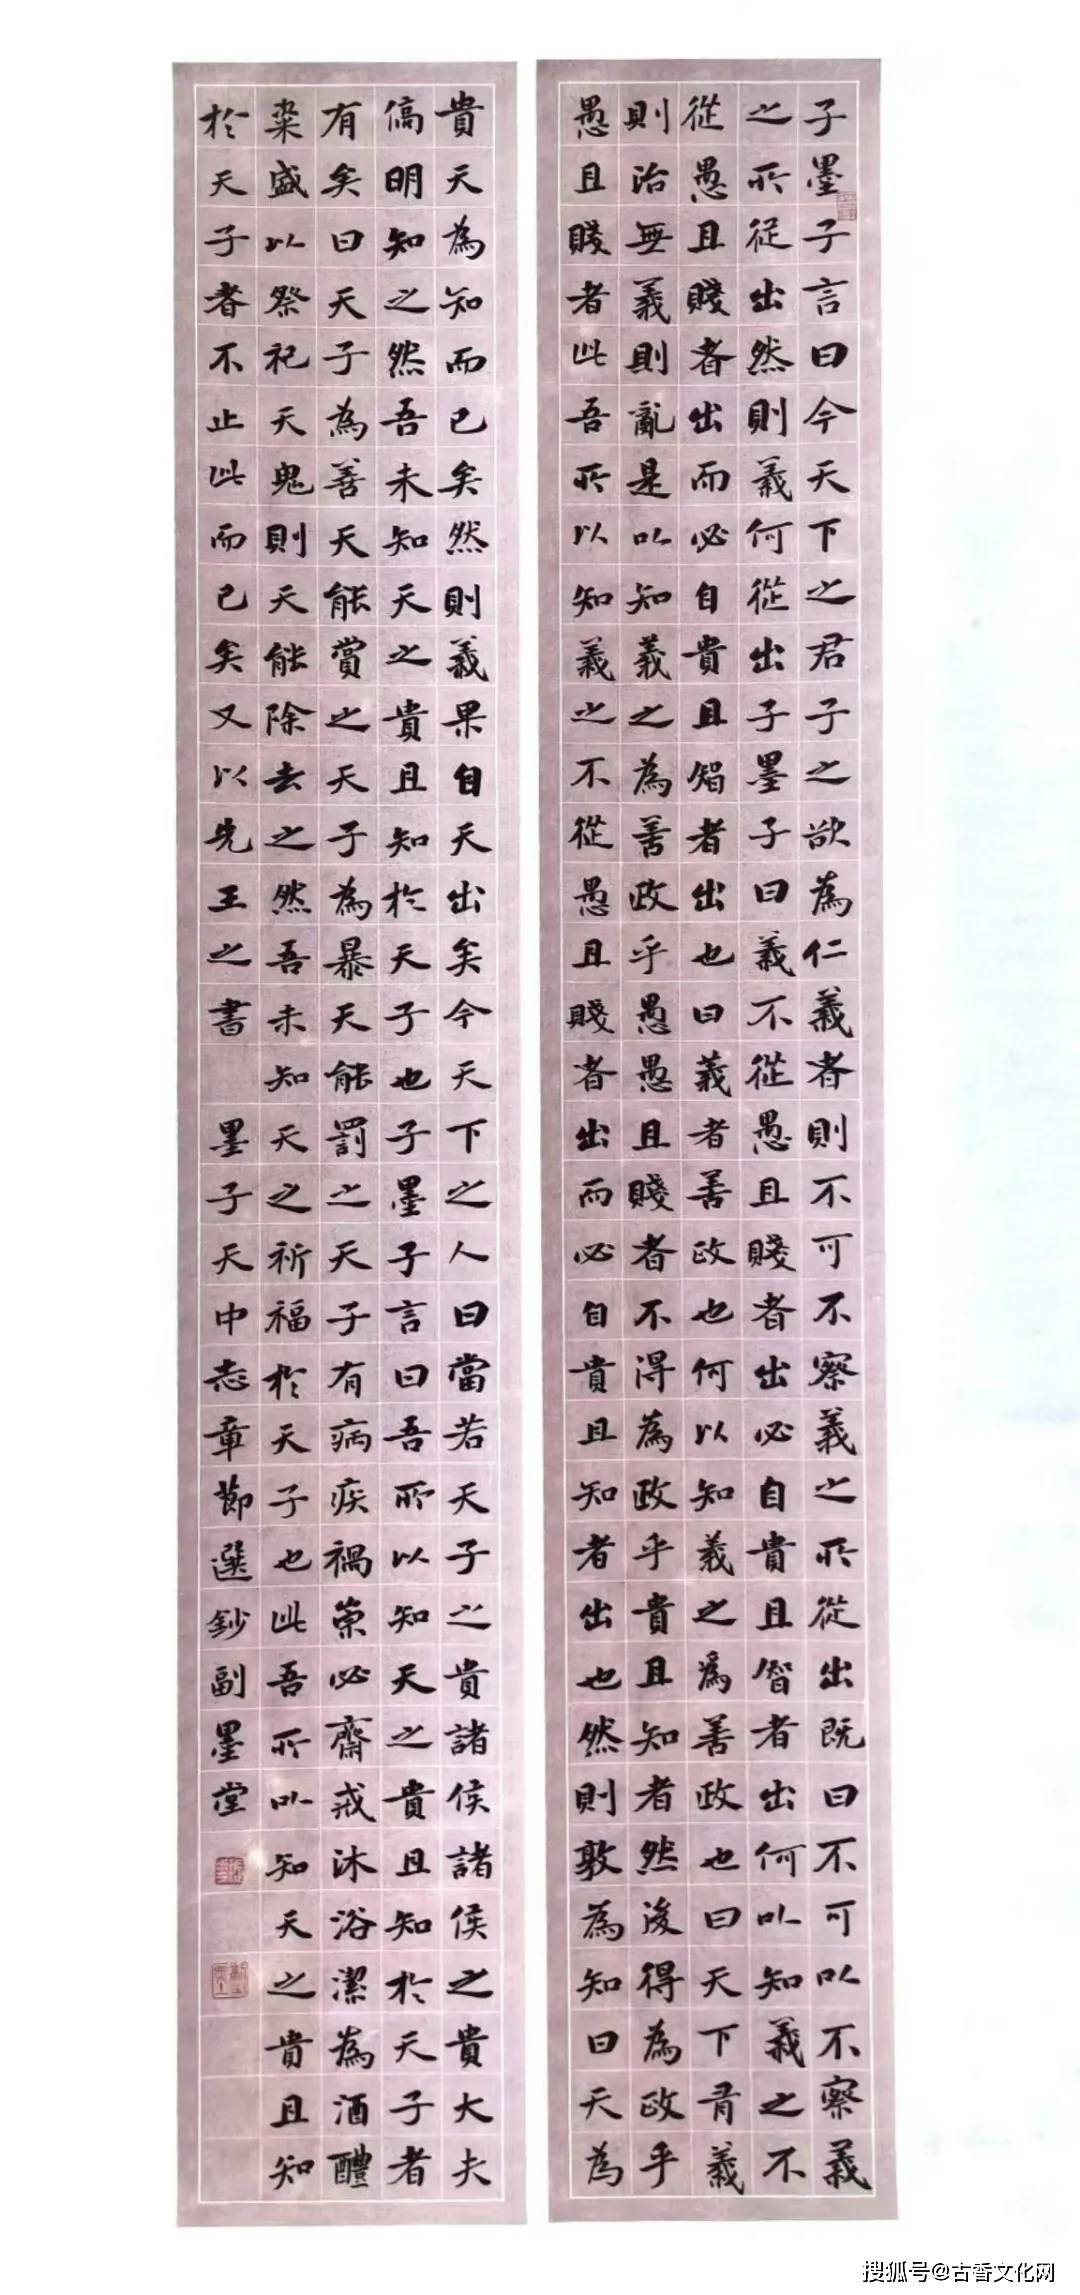 子墨子言曰今天下之君子之欲為仁義者則不可不察義之所從出既曰不可以不察義
之所從出然則義何從出子墨子曰義不從愚且賤者出必自貴且智者出何以知義之不
從愚且賤者出而必自貴且智者出也曰義者善政也何以知義之為善政也曰天下有義
則治無義則亂是以知義之為善政乎愚愚且賤者不得為政乎貴且知者然後得為政乎
愚且賤者此吾所以知義之不從愚且賤者出而必自貴且知者出也然則敦為知曰天為
貴天為知而已矣然則義果自天出矣今天下之人曰當若天子之貴諸侯諸侯之貴大夫
傐明知之然吾未知天之貴且知於天子也子墨子言曰吾所以知天之貴且知於天子者
有矣曰天子為善天能賞之天子為暴天能罰之天子有病疾禍祟必齋戒沐浴潔為酒醴
粢盛以祭祀天鬼則天能除去之然吾未知天之祈福於天子也此吾所以知天之貴且知
於天子者不止此而已矣又以先王之書 墨子天中志章節選鈔副墨堂
搜狐号@古香文化网